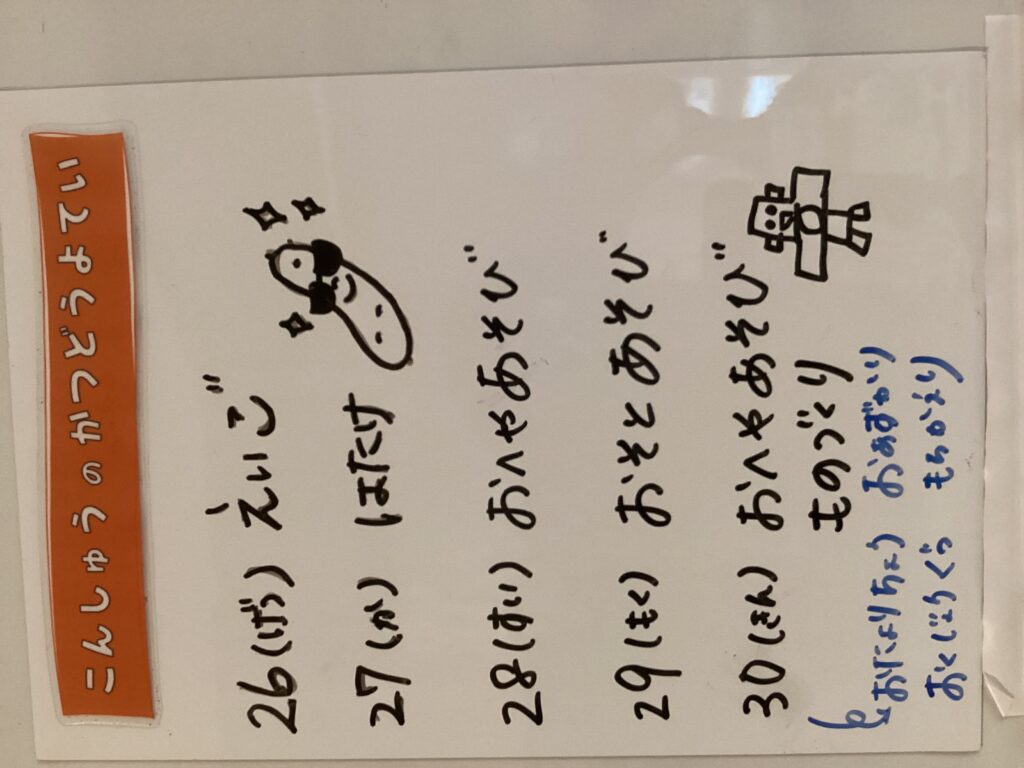 こんしゅうのかつどうよてい
26(げつ) えいご
27(か) はたけ
28(すい) おへやあそび
29(もく) おそとあそび
30(きん) おへやあそび
ものづくり
おたよりちょう おあずかり
おくじょうぐつ もちかえり